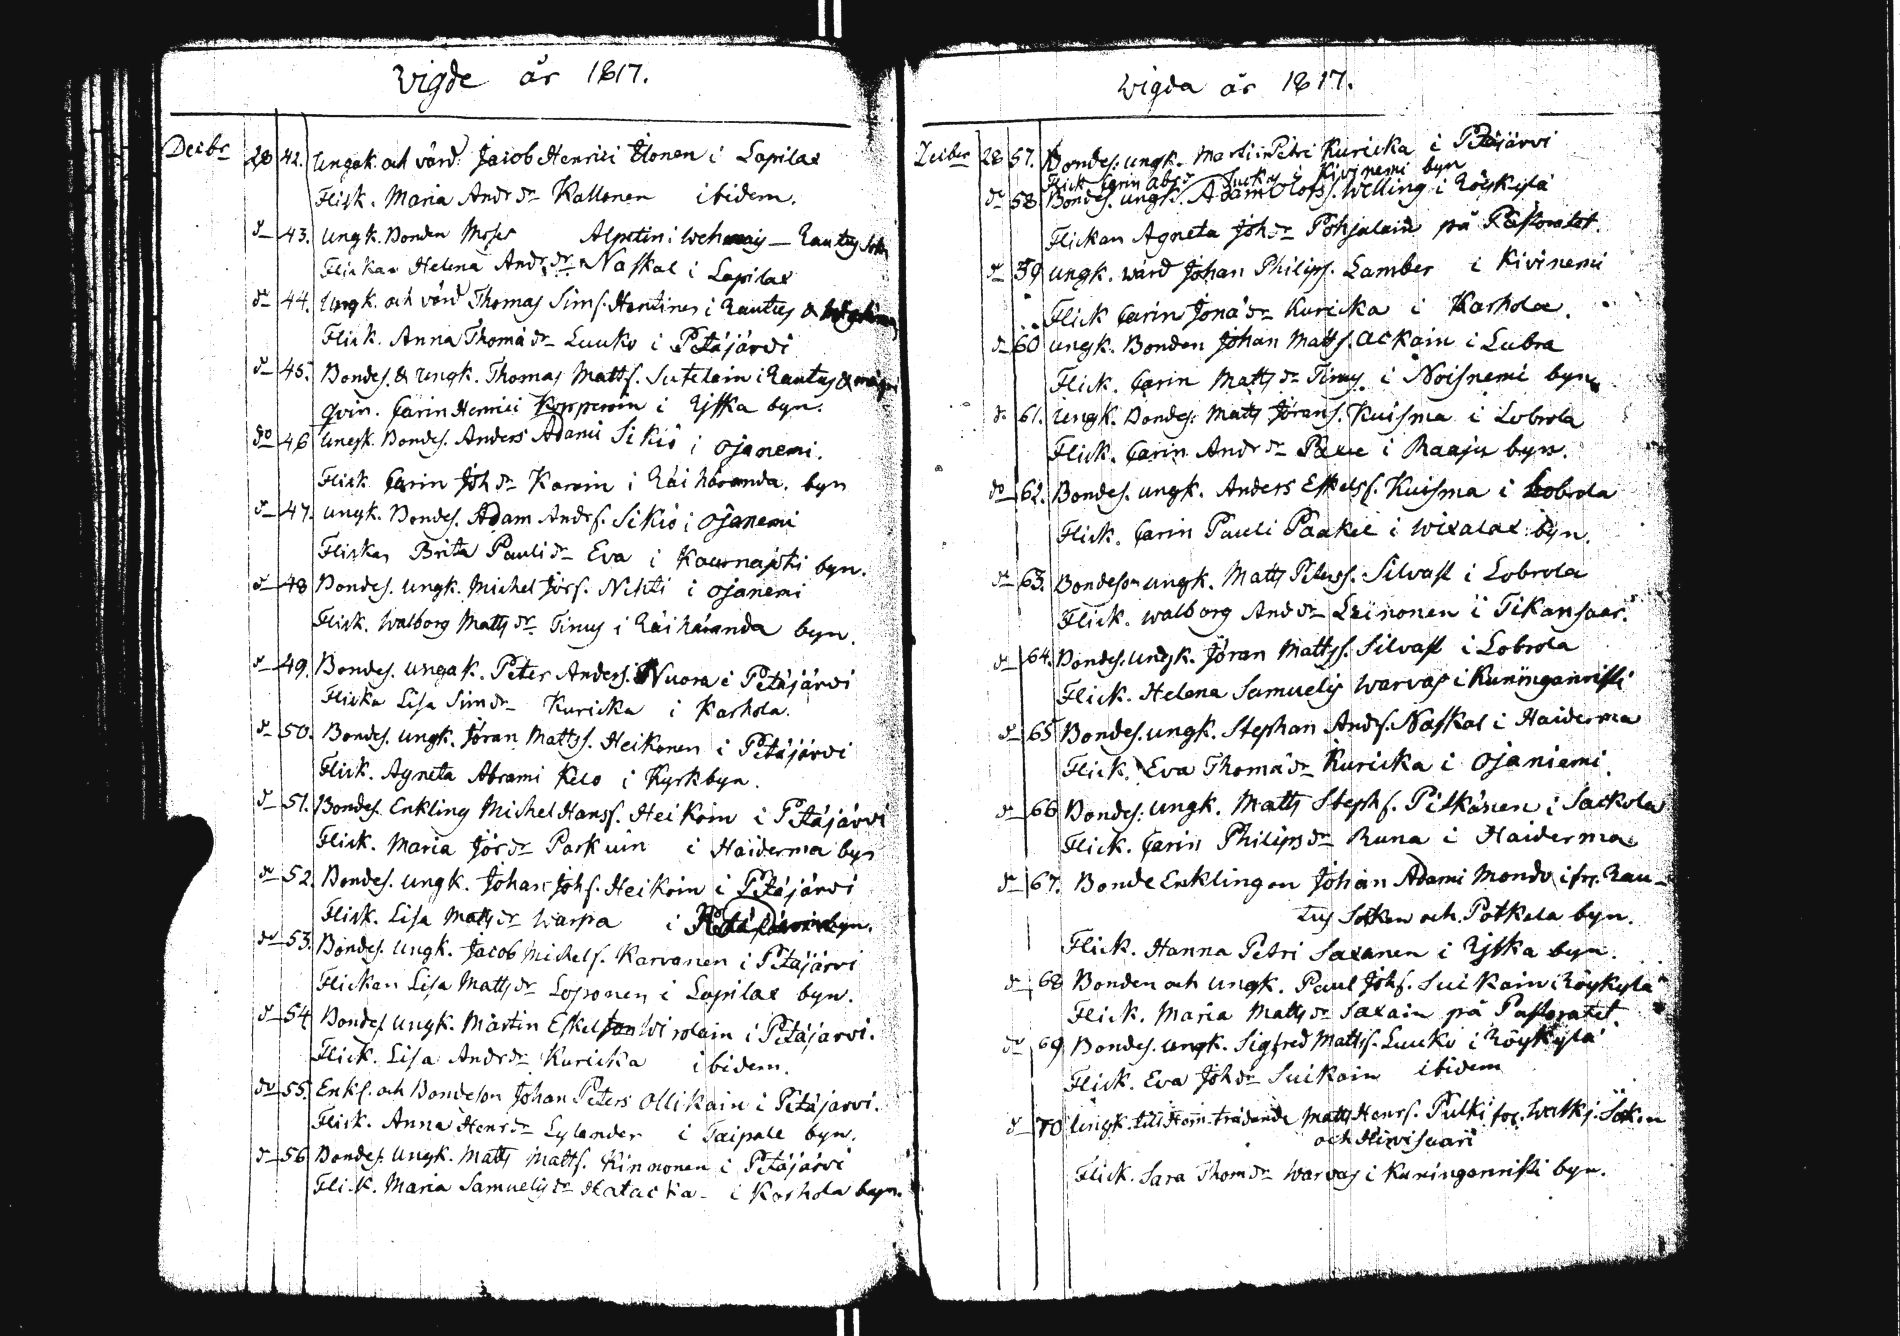 Vigde år 1817.
Decibr 28 42. Ungak. och värd: Jacob Henrici Ilonen i Lapilax
Flick. Maria Andr dr Kallonen ibidem.
d 43. Ungk. Bonden Moses Alpetin i Wehmaj — Rautus Sokn
Flickan Helena Andr dr Naskal i Lapilax
do 44. Ungk. och värd Thomas Sims. Hontinen i Rautus &
Flick. Anna Thomä dr Luuko i Petäjärvi
d 45. Bondes. & Ungk. Thomas Matts. Sutelain i Rautus &
Qvin. Carin Henrici Kopperoin i Rjska byn.
do 46 Ungk. Bondes. Anders Adami Sikiö i Ojanemi.
Flick Carin Joh dr Karvin i Räihäranda. byn
d 47. Ungk. Bondes. Adam Andrs. Sikiö i Ojanemi
Flickan Brita Pauli dr Eva i Kaurnajoki byn.
d 48 Bondes. Ungk. Michel Jörs. Nikti i Ojanemi
Flick. Walborg Matts dr Timus i Räihäranda byn.
d 49. Bondes. Ungak. Peter Anders. Nuora i Petäjärvi
Flicka Lisa Sim dr Kuricka i Karhola.
d 50. Bondes. Ungk. Jöran Mattss. Heikonen i Petäjärvi
Flick. Agneta Abrami Kelo i Kyrkbyn.
d 51. Bondes. Enkling Michel Hanss. Heikoin i Petäjärvi
Flick. Maria Jör dr Parkuin i Haiderma byn
do 52. Bondes. Ungk. Johan Johs. Heikoin i Petäjärvi
Flick. Lisa Matts dr Warpa i Petäjärvi byn.
do 53. Bondes. Ungk. Jacob Michels. Karvanen i Petäjärvi
Flickan Lisa Matts dr Loponen i Lapilax byn.
d 54 Bondes Ungk. Mårtin Eskelson Wirolain i Petäjärvi.
Flick. Lisa Andr dr Kuricka ibidem.
do 55. Enkl. och Bondeson Johan Peters Ollikain i Petäjärvi.
Flick. Anna Henr dr Lylander i Taipale byn.
d 56 Bondes. Ungk. Matts Matts. Kinnonen i Petäjärvi
Flick. Maria Samuelis dr Hatacka i Karhola byn.
Wigda år 1817.
Decibr 28 57. Bondes. ungk. Martin Petri Kuricka i Petäjärvi
Flick Carin Abr dr i Kivinemi byn
do 58. Bondes. ungk. Adam Olofs. Welling i Röykylä
Flickan Agneta Joh dr Pohjalain på Pastoratet.
do 59 ungk. wärd Johan Philips. Lamber i Kivinemi
Flick Carin Jonä dr Kuricka i Karhola.
d 60 ungk. Bonden Johan Matts. Ackain i Lubra
Flick. Carin Matts dr Timus i Noisnemi byn.
do 61. Ungk. Bondes. Matts Jörans. Kuisma i Lobrola
Flick. Carin Andr dr Paxu i Raaju byn.
do 62. Bondes. ungk. Anders Eskels. Kuisma i Lobrola
Flick. Carin Pauli Paakel i Wixalax byn.
do 63. Bondeson ungk. Matts Peterss. Silvast i Lobrola
Flick. Walborg And dr Leinonen i Tikansaar.
d 64. Bondes. ungk. Jöran Mattss. Silvast i Lobrola
Flick. Helena Samuelis Warvas i Kuninganristi
d 65 Bondes. ungk. Stephan Ands. Naskal i Haiderma
Flick. Eva Thomä dr Kuricka i Ojaniemi
d 66 Bondes. Ungk. Matts Stephs. Pitkänen i Sackola
Flick. Carin Philips dr Runa i Haiderma
d 67. Bonde Enklingen Johan Adami Mondo i fr. Rau-
tus Sokken och Potkela byn.
Flick. Hanna Petri Saxanen i Rjska byn.
d 68 Bonden och ungk. Paul Johs. Suikain i Röykylä
Flick. Maria Matts dr Saxain på Pastoratet.
do 69 Bondes. ungk. Sigfred Matts. Luuko i Röykylä
Flick. Eva Joh dr Suikain ibidem
d 70 Ungk. till Hem trädande Matts Henrs. Pulki för. Walkj. Sokn
och Hirvisaari
Flick. Sara Thom dr Warvas i Kuninganristi byn.